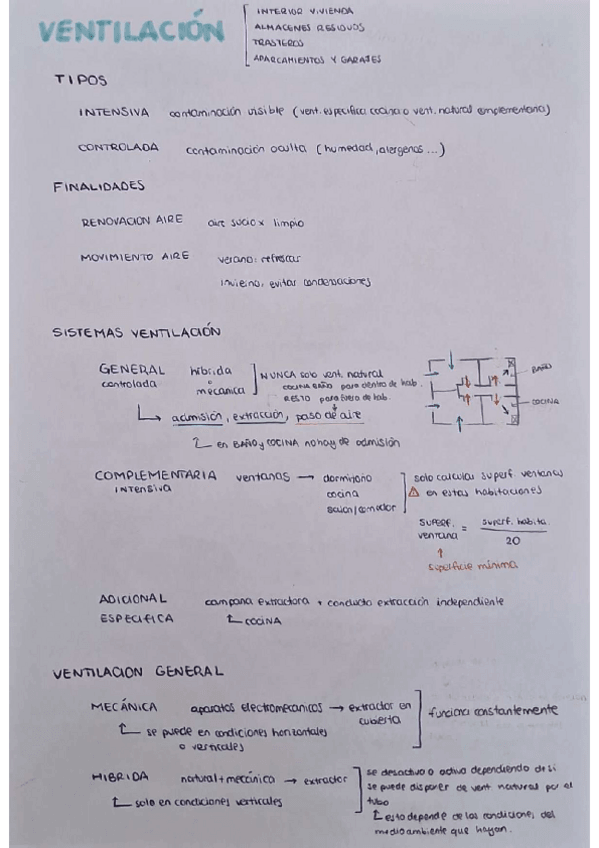 VENTILACIÓN
INTERIOR VIVIENDA
ALMACENES RESIDUOS
TRASTEROS
APARCAMIENTOS Y GARAJES
TIPOS
INTENSIVA contaminación visible (vent. específica cocina o vent. natural complementaria)
CONTROLADA contaminación oculta (humedad, alergenos ...)
FINALIDADES
RENOVACION AIRE aire sucio x limpio
MOVIMIENTO AIRE verano: refrescar
invierno: evitar condensaciones
SISTEMAS VENTILACIÓN
GENERAL híbrida
controlada o
mecánica
NUNCA solo vent. natural
COCINA BAÑO para dentro de hab.
RESTO para fuera de hab.
BAÑO
COCINA
admisión, extracción, paso de aire
en BAÑO y COCINA no hay de admisión
COMPLEMENTARIA ventanas → dormitorio
INTENSIVA cocina
salon/comedor
solo calcular superf. ventanas
⚠ en estas habitaciones
SUPERF. ventana = superf. habita. / 20
↑
superficie mínima
ADICIONAL campana extractora + conducto extracción independiente
ESPECIFICA COCINA
VENTILACION GENERAL
MECÁNICA aparatos electromecanicos → extractor en
cubierta
funciona constantemente
se puede en condiciones horizontales
o verticales
HIBRIDA natural + mecánica → extractor
solo en condiciones verticales
se desactiva o activa dependiendo de si
se puede disponer de vent natural por el
tubo
esto depende de las condiciones del
medio ambiente que hayan.